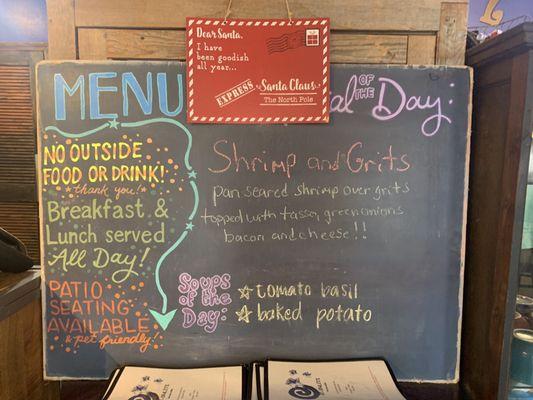 Dear Santa,
I have been goodish
all year...
EXPRESS
Santa Claus
The North Pole
MENU
of the
Day:
NO OUTSIDE
FOOD OR DRINK!
*thank you!*
Breakfast &
Lunch served
All Day!
PATIO
SEATING
AVAILABLE
& pet friendly!
Shrimp and Grits
pan seared shrimp over grits
topped with tasso, green onions
bacon and cheese!!
Soups
of the
Day:
☆ tomato basil
☆ baked potato